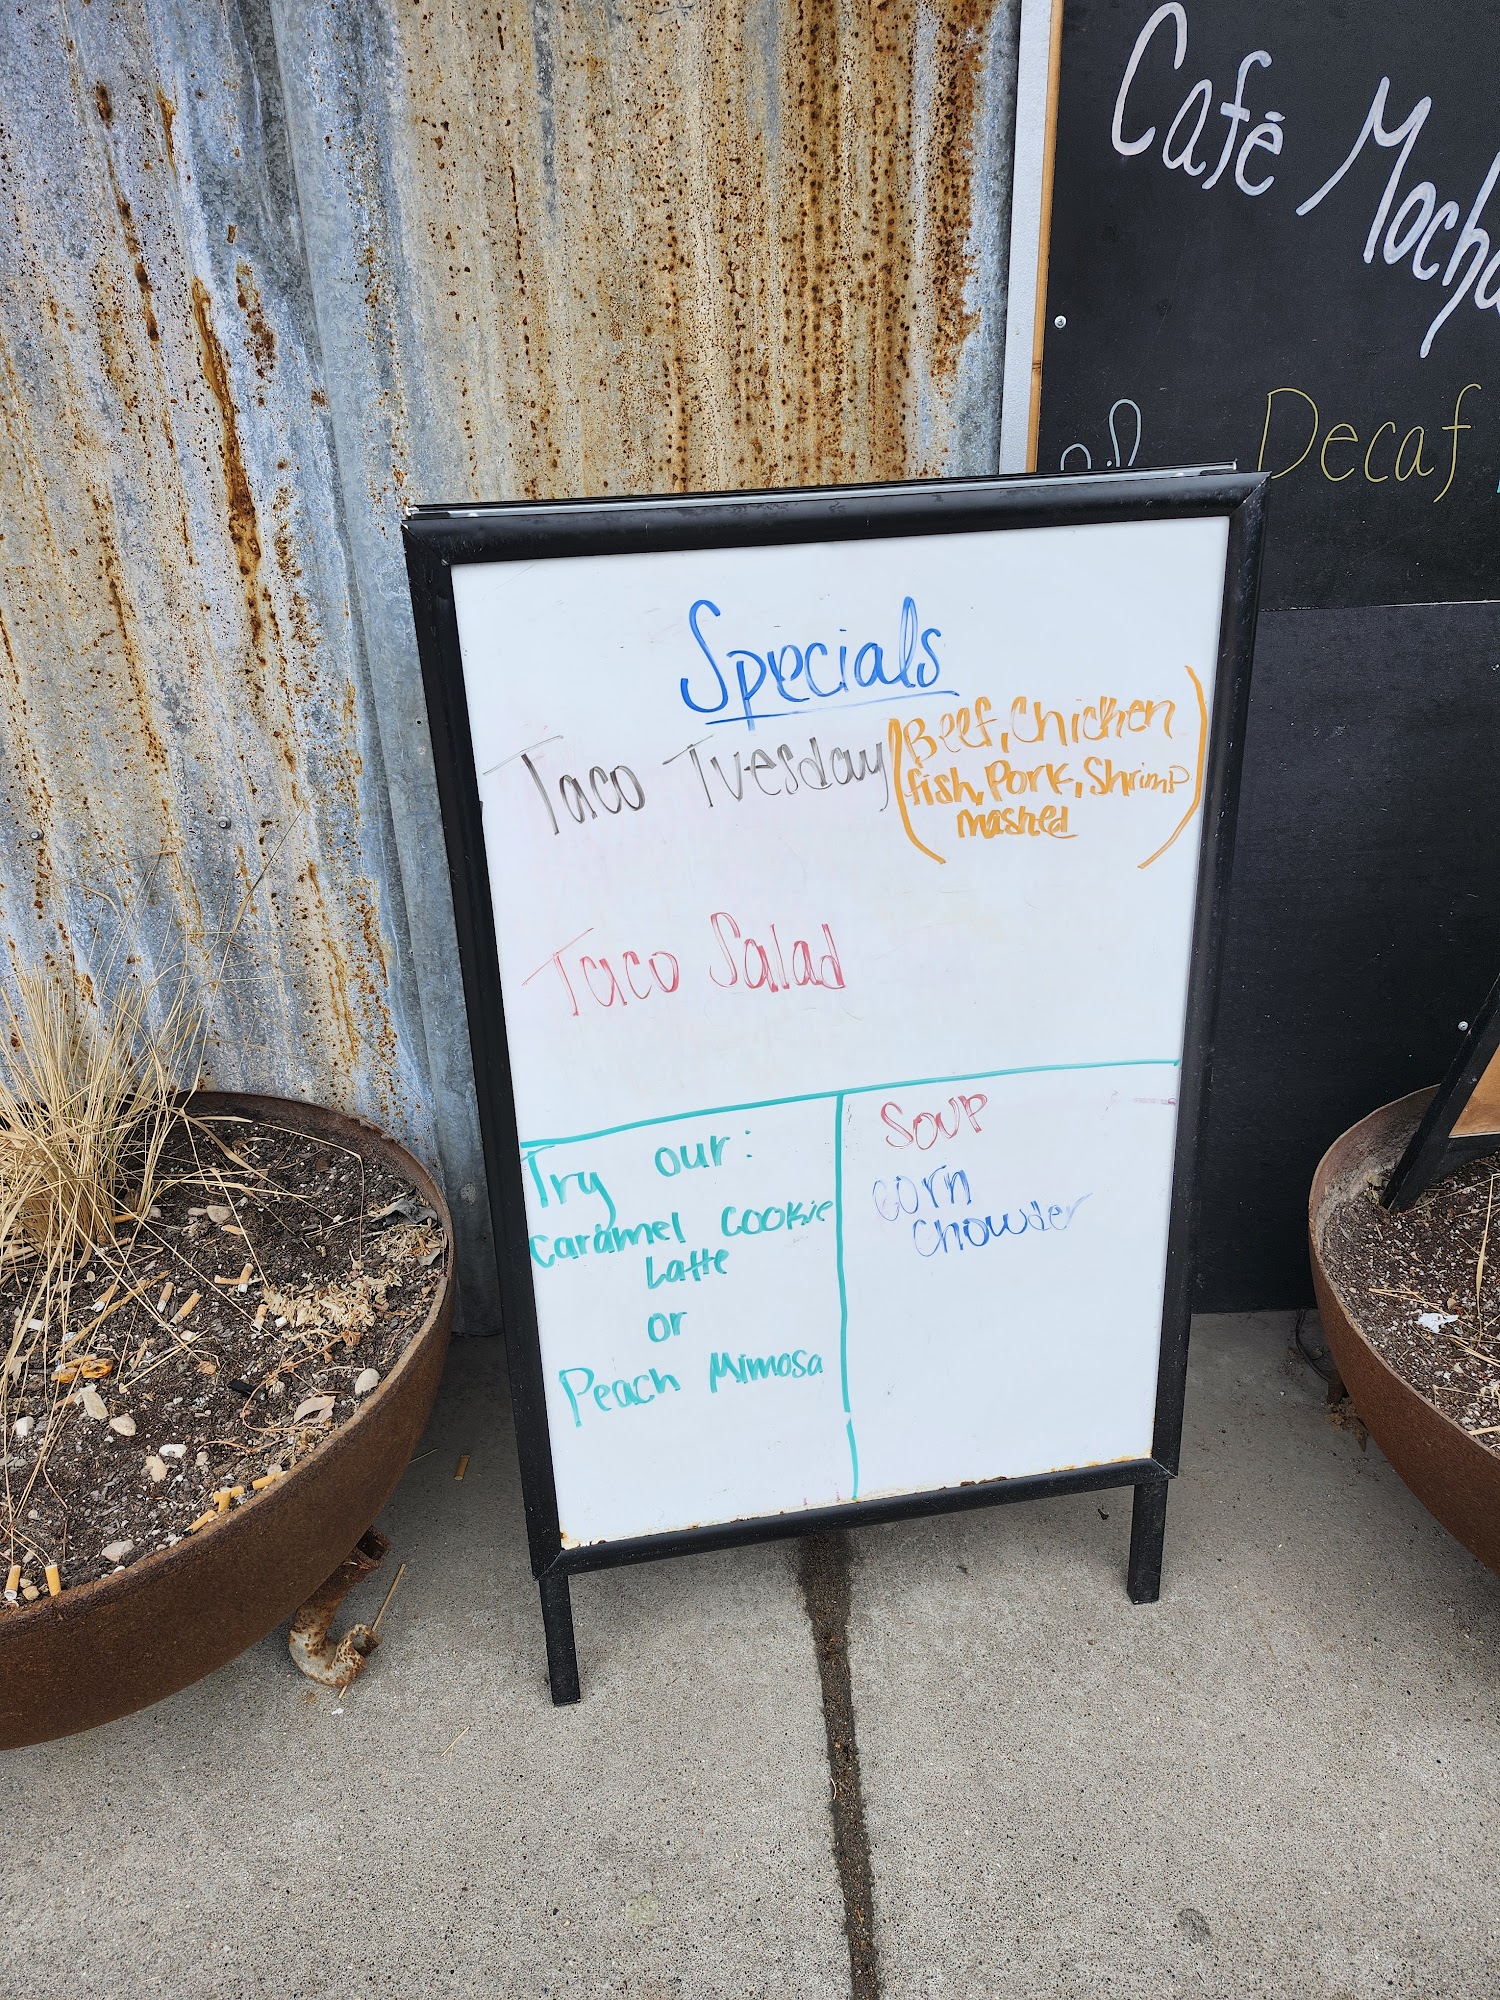 Café Mocha
Decaf
Specials
Taco Tuesday (Beef, Chicken
fish, Pork, Shrimp
mashed)
Taco Salad
Try our:
Caramel Cookie
Latte
or
Peach Mimosa
Soup
corn
chowder